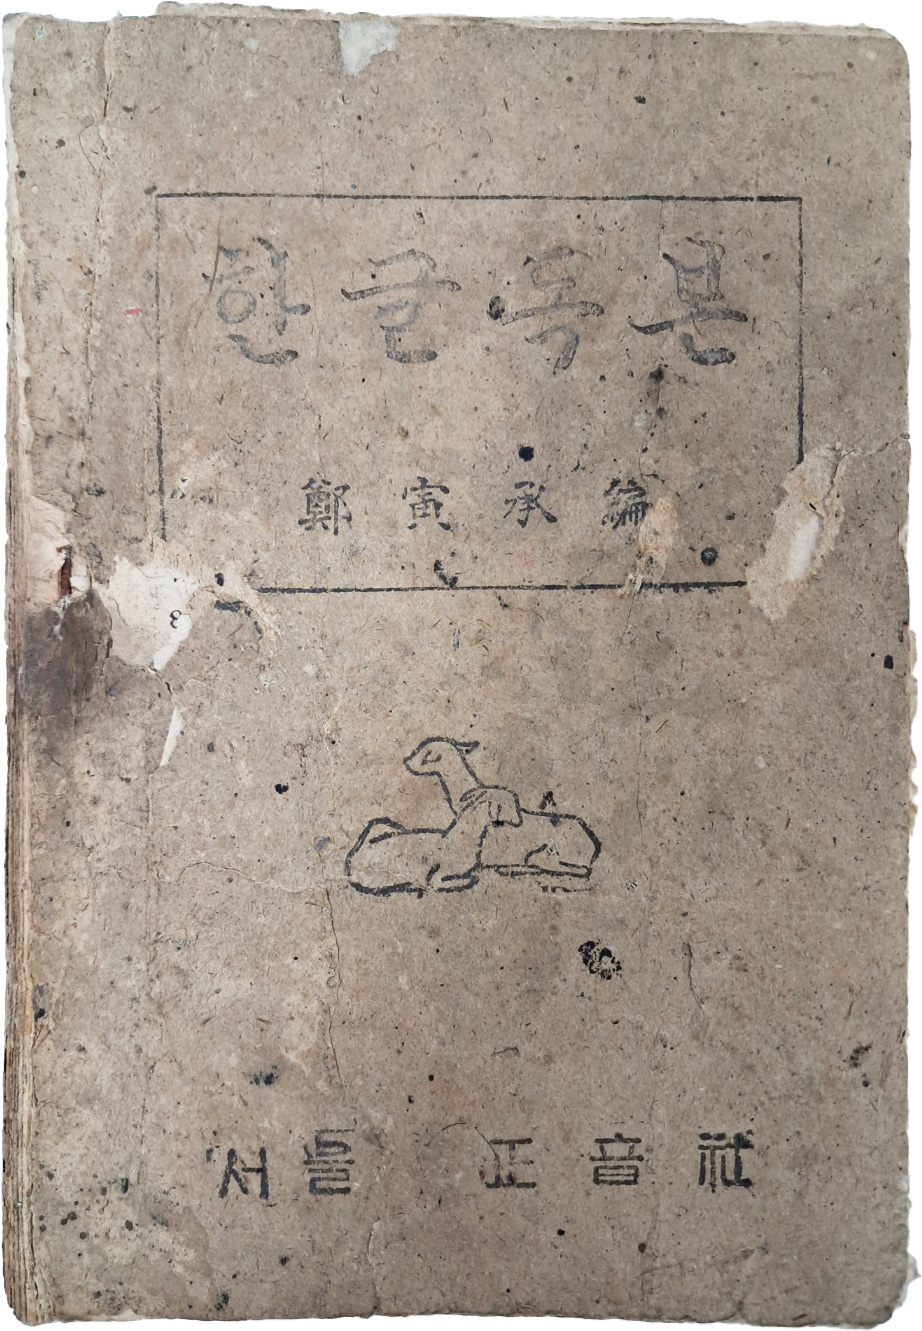 한글독본
鄭寅承編
서울 正音社